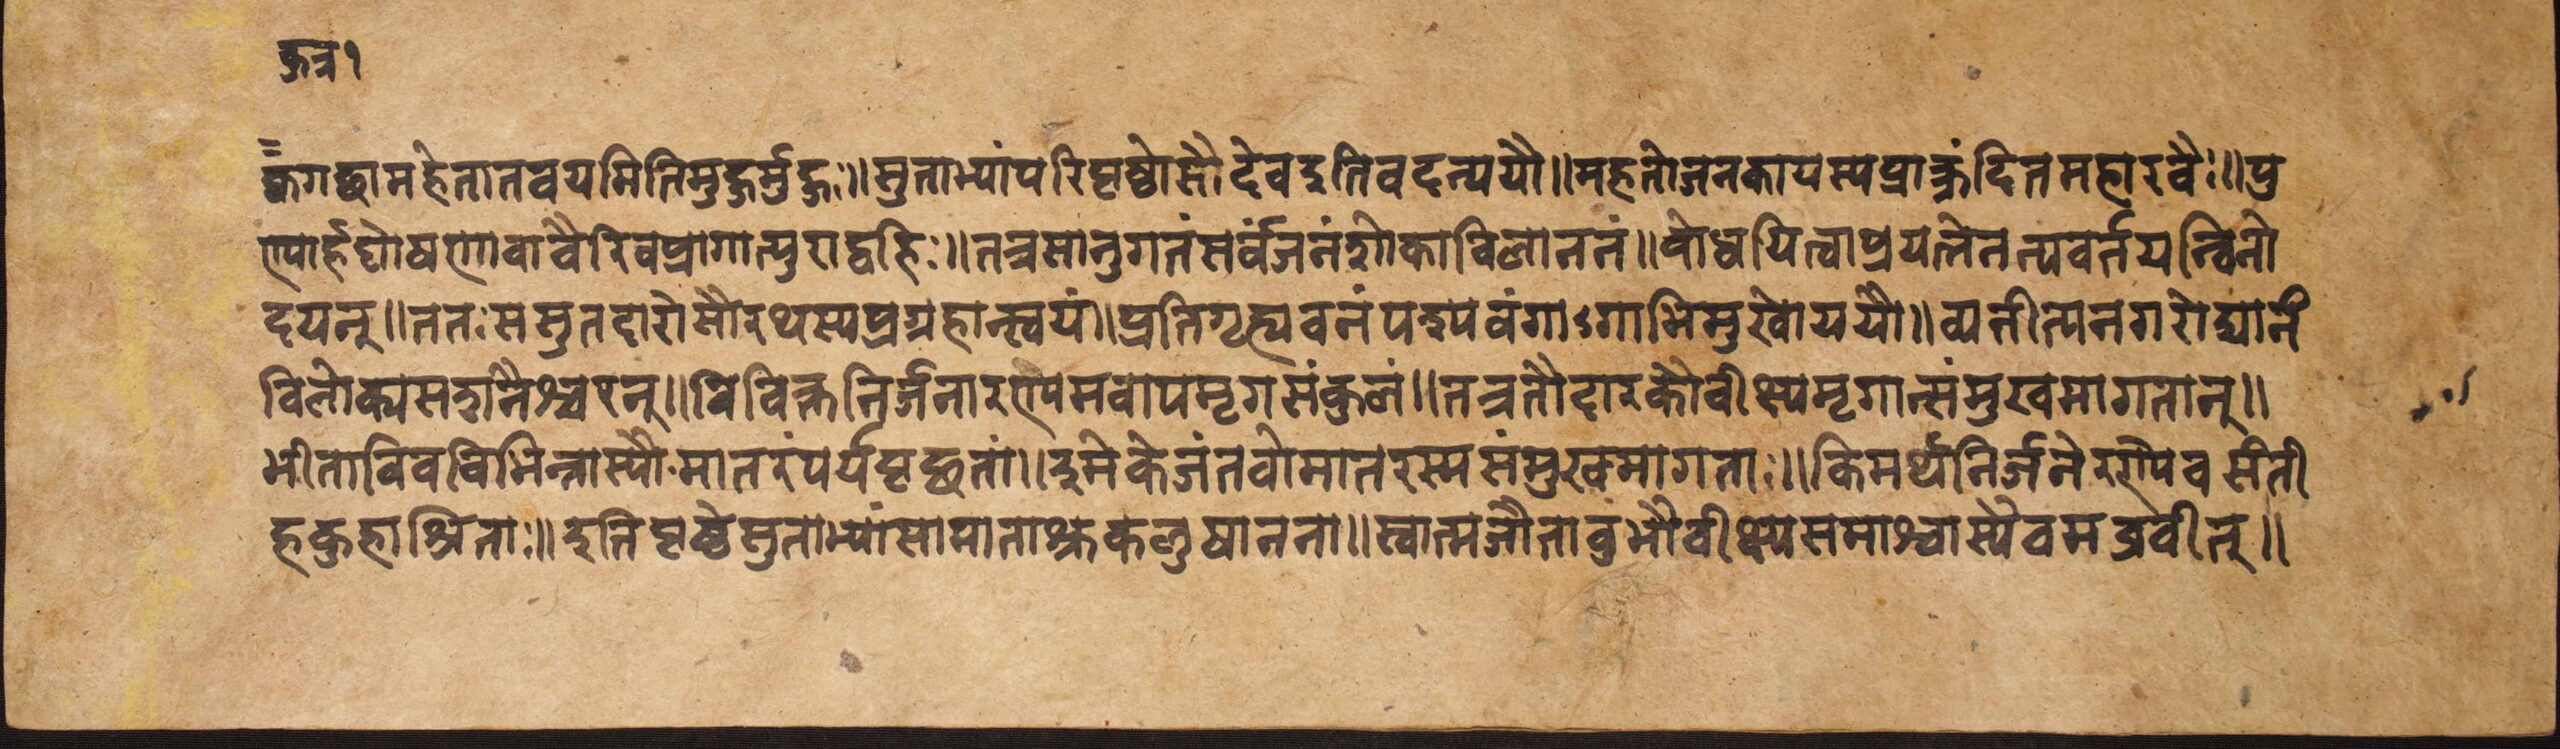 कुत्र१
क्वगछामहेतातवयमितिमुहुर्मुहुः॥सुताभ्यांपरिपृष्टोसौदेवइतिवदन्ययौ॥महतोजनकायस्यप्राक्रंदितमहारवैः॥पु
ण्यार्हघोषणावावैरिवप्रागात्पुराद्वहिः॥तत्रसानुगतंसर्वंजनंशोकाविलाननं॥बोधयित्वाप्रयत्नेनन्यवर्तयन्विनो
दयन्॥ततःससुतदारोसौरथस्यप्रग्रहान्स्वयं॥प्रतिगृह्यवनंपद्मपवंगाऽगाभिमुखोययौ॥व्यतीत्यनगरोद्यानं
विलोक्यसशनैश्चरन्॥विविक्तनिर्जनारण्यमवापमृगसंकुलं॥तत्रतौदारकौवीक्ष्यमृगान्संमुखमागतान्॥
भीताविवविभिन्नास्यौमातरंपर्यपृछतां॥इमेकेजंतवोमातरस्मसंमुखमागताः॥किमर्थंनिर्जनेरण्येवसंती
हकुहाश्रिताः॥इतिपृष्टेसुताभ्यांसामाताश्रुकलुषानना॥स्वात्मजौतावुभौवीक्ष्यसमाश्वास्यैवमब्रवीत्॥